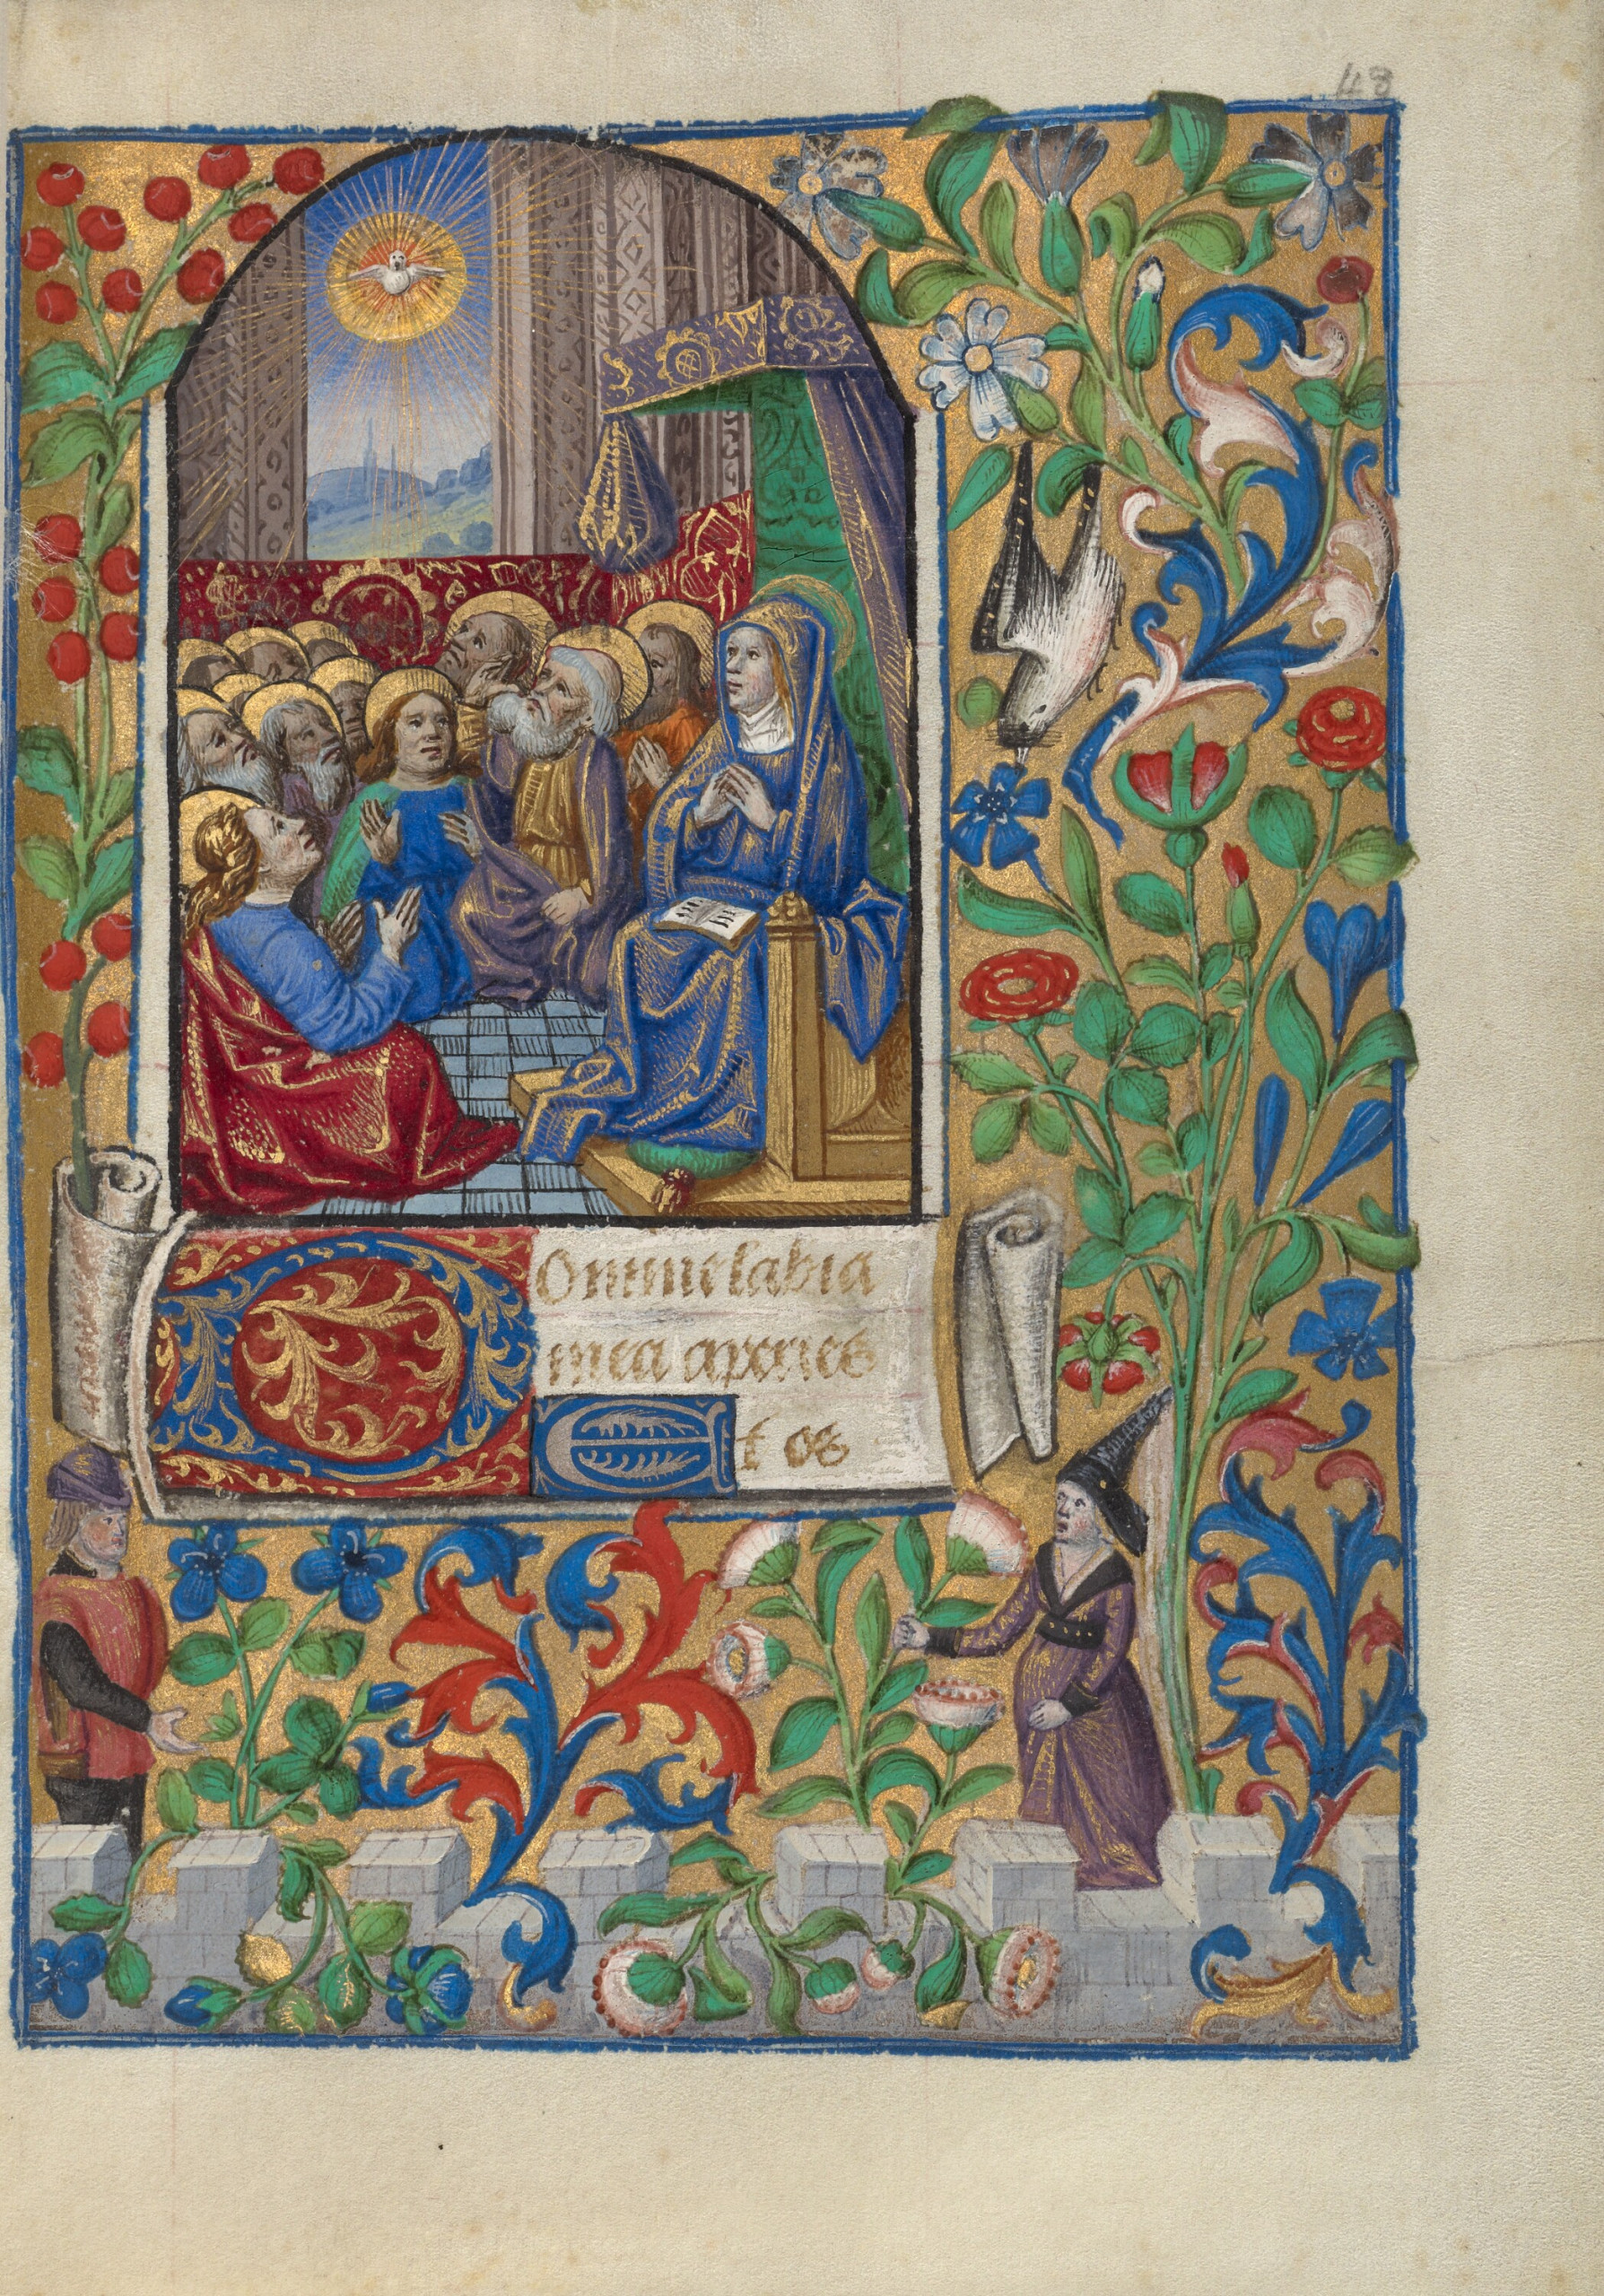 48
Domine labia
mea aperies
Et os